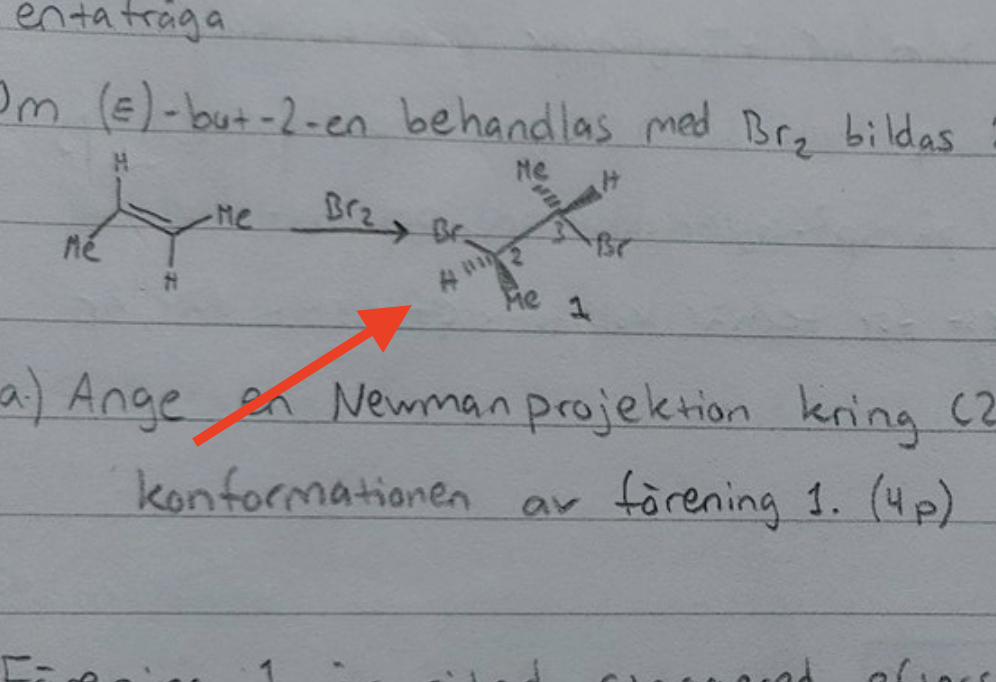 entafråga
Om (E)-but-2-en behandlas med Br₂ bildas
H
Me
Me
H
Br₂
Br
H
2
Me
3
Me
H
Br
1
a.) Ange en Newmanprojektion kring C2
konformationen av förening 1. (4p)